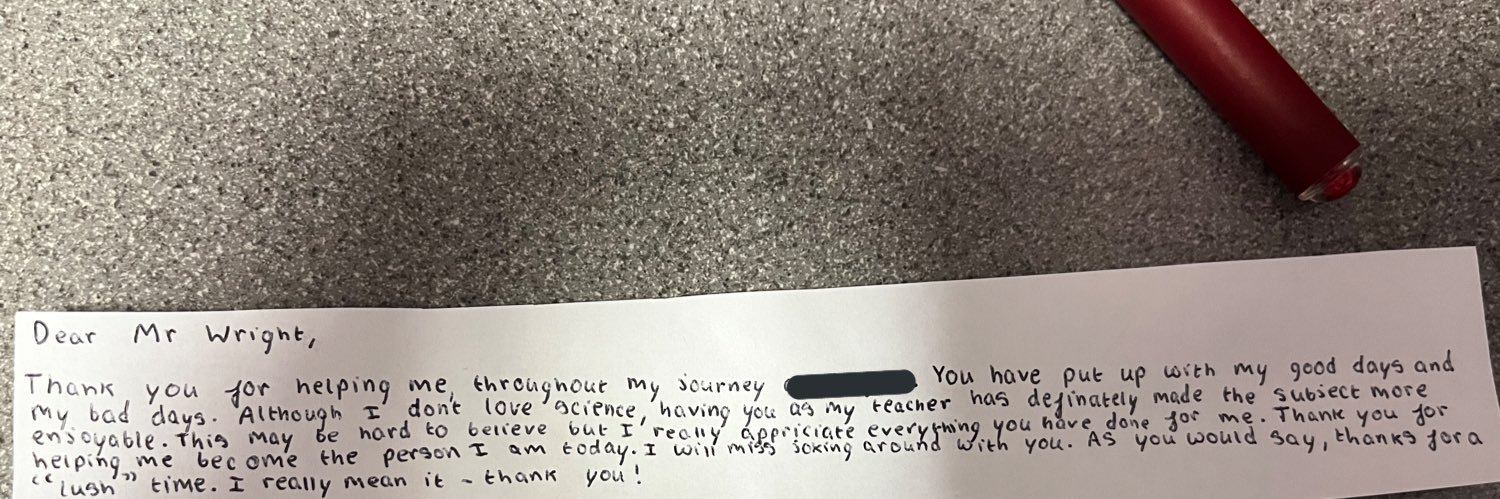 Dear Mr Wright,
Thank you for helping me, throughout my journey You have put up with my good days and
my bad days. Although I don't love science, having you as my teacher has definately made the subject more
enjoyable. This may be hard to believe but I really appriciate everything you have done for me. Thank you for
helping me become the person I am today. I will miss joking around with you. As you would say, thanks for a
"lush" time. I really mean it - thank you!